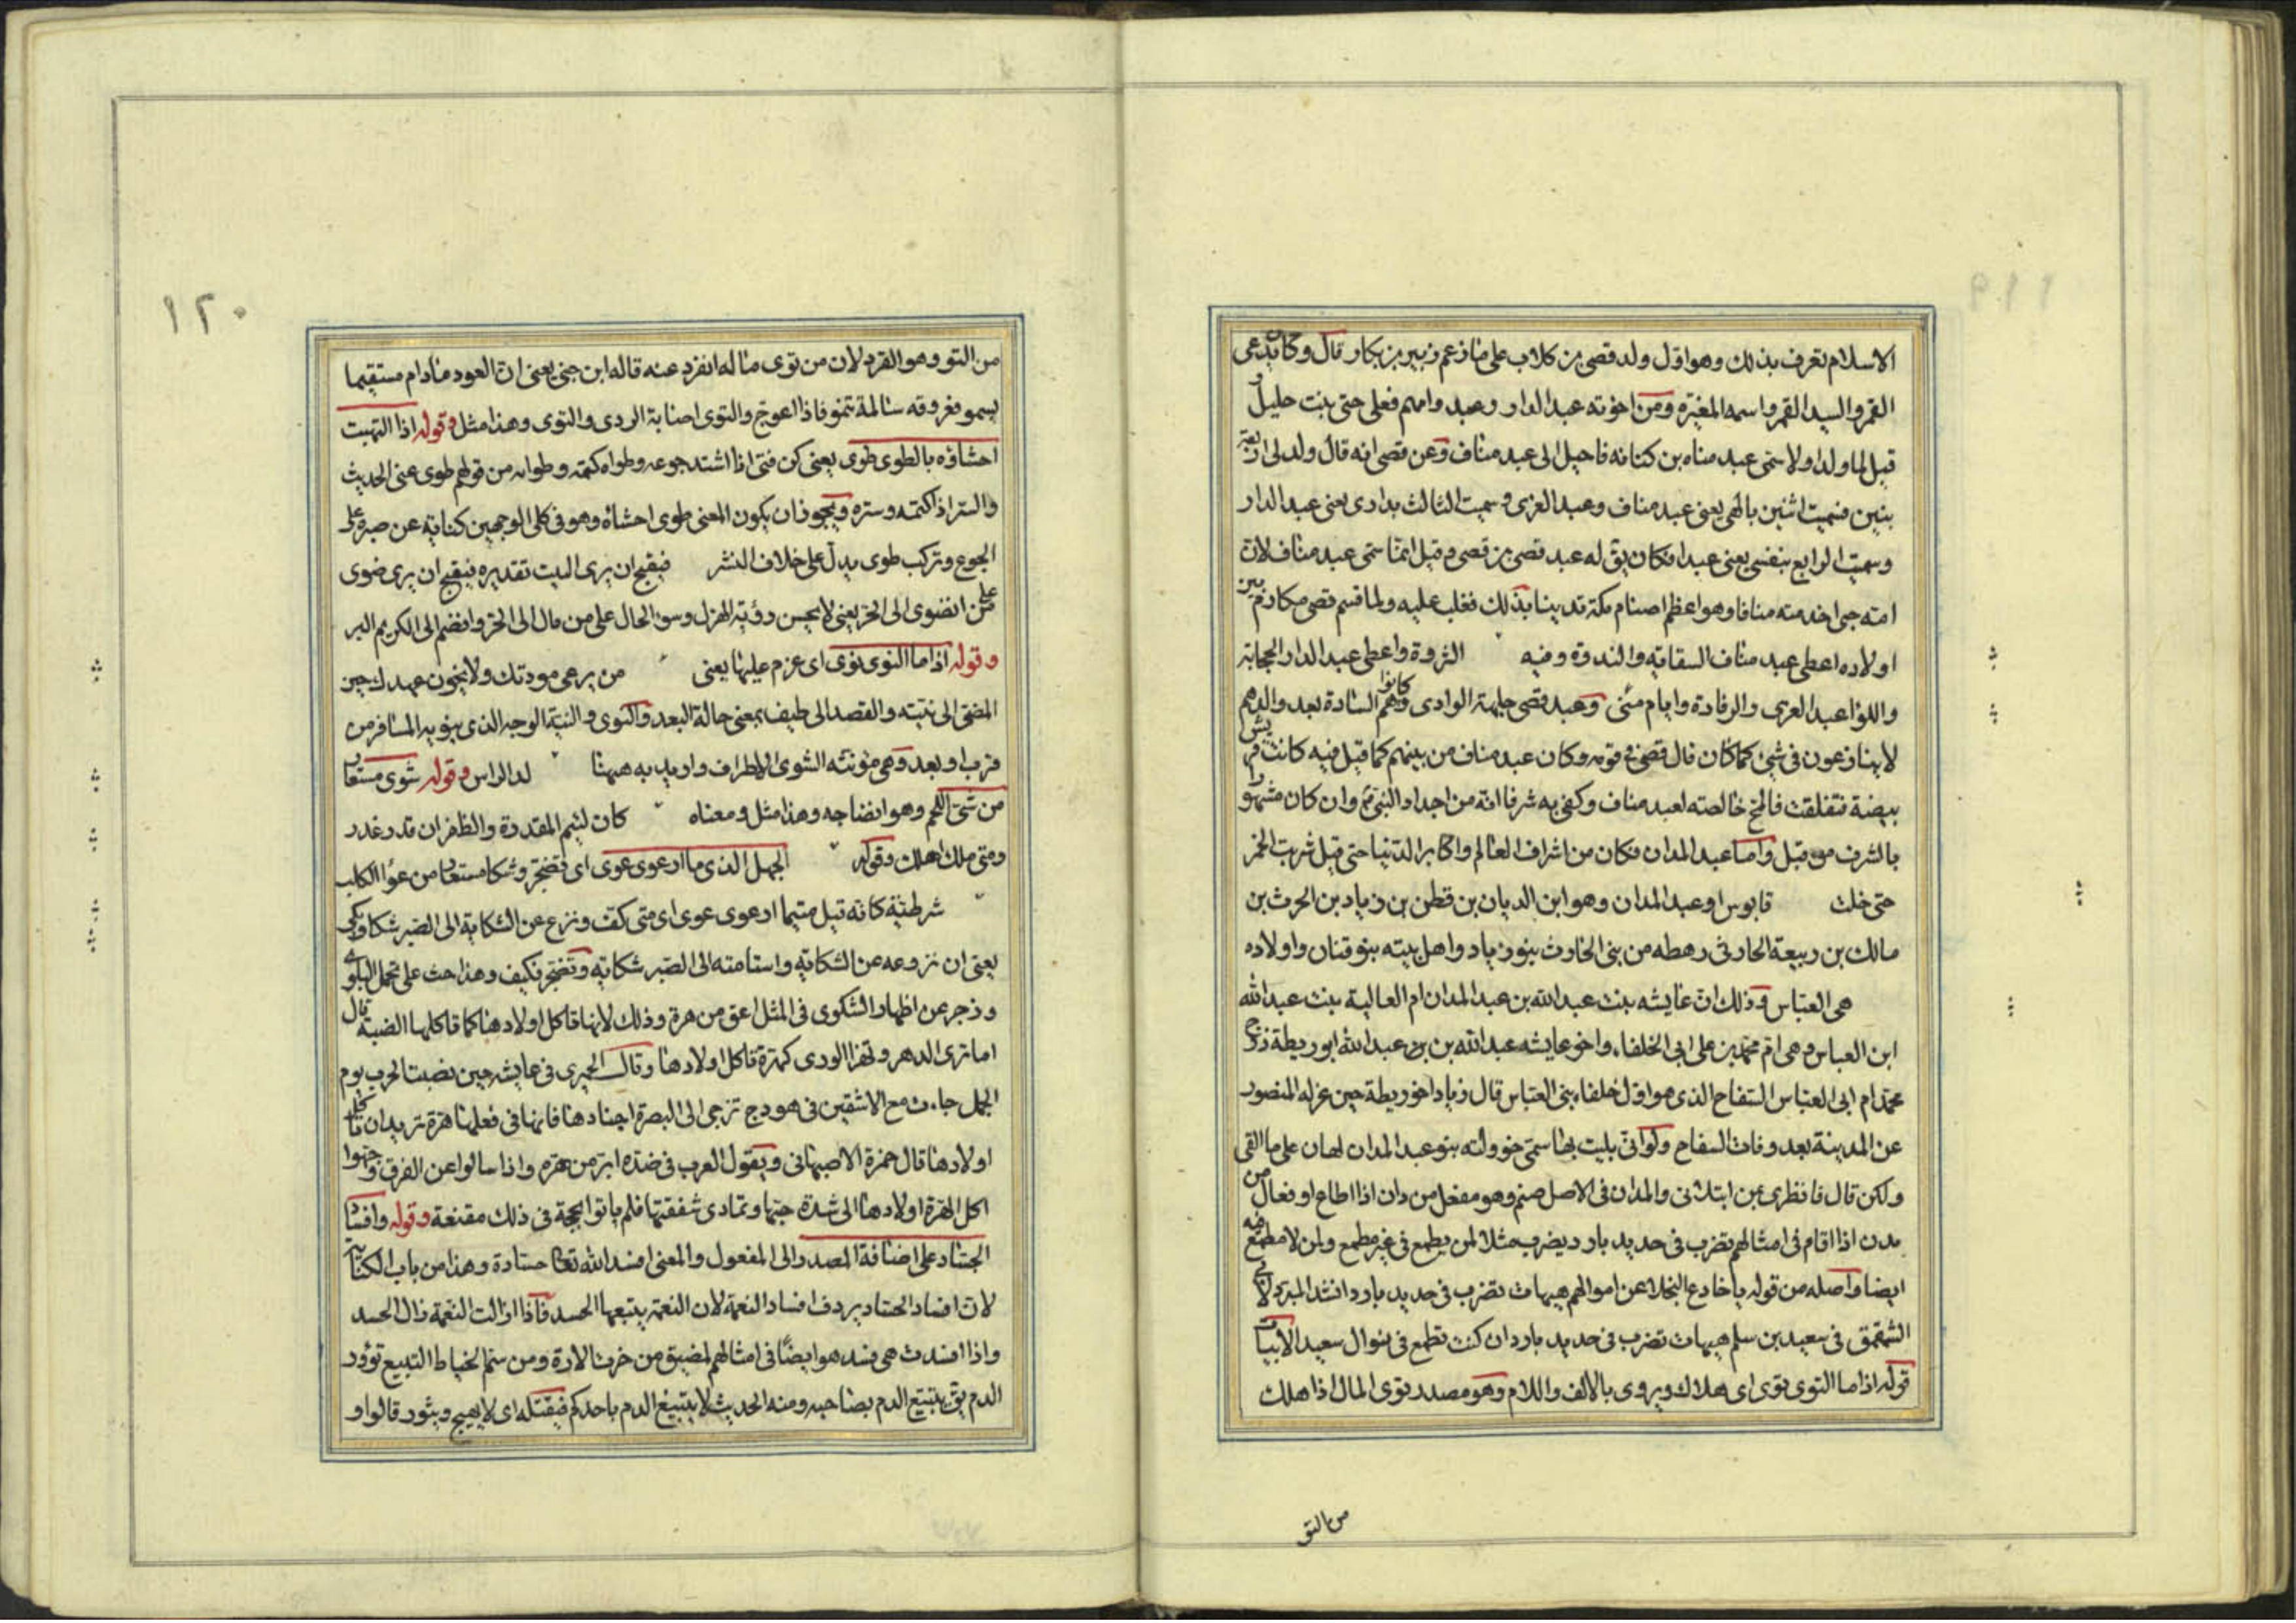 الاسلام تعرف بذلك وهو اول ولد قصى بن كلاب على ما زعم زبير بن بكار قال وكان يدعى
القمر والسيد القمر واسمه المغيرة ومن اخوته عبد الدار وعبد وامهم فعلى حتى بنت حليل
قبل لها ولد اولا سمى عبد مناه بن كنانه فاحيل الى عبد مناف وعن قصى انه قال ولد لى اربعة
بنين فسميت اثنين بالهى يعنى عبد مناف وعبد العزى وسميت الثالث بدارى يعنى عبد الدار
وسميت الرابع بنفسى يعنى عبدا فكان يق له عبد قصى بن قصى وقيل انما سمى عبد مناف لان
امته حبى اخدمته منافا وهو اعظم اصنام مكة تدينا بذلك فغلب عليه ولما قسم قصى مكارم بين
اولاده اعطى عبد مناف السقايه والندوة وفيه الثروة واعطى عبد الدار الحجابة
واللوا عبد العزى والرفادة وايام منى وعبد قصى جلهة الوادى وكانوا هم السادة بعد والدهم
لا ينازعون فى شئ كما كان قال قصى فى قومه وكان عبد مناف من بينهم كما قيل فيه كانت قريش
بيضة فتفلقت فالمح خالصته لعبد مناف وكفى به شرفا انه من اجداد النبى وان كان مشهورا
بالشرف من قبل واما عبد المدان فكان من اشراف العالم واكابر الدنيا حتى قيل شربت الخمر
حتى خلت قابوس او عبد المدان وهو ابن الديان بن قطن بن زياد بن الحرث بن
مالك بن ربيعة الحارثى رهطه من بنى الحارث بنو زياد واهل بيته بنو قنان واولاده
هى العباس وذلك ان عايشه بنت عبد الله بن عبد المدان ام العالية بنت عبد الله
ابن العباس وهى ام محمد بن على ابى الخلفاء واخو عايشه عبد الله بن عبد الله ابو ريطة زوج
محمد ام ابى العباس السفاح الذى هو اول خلفاء بنى العباس قال زياد اخو ريطة حين عزله المنصور
عن المدينة بعد وفات السفاح ولو انى بليت بهاشمى خوولته بنو عبد المدان لهان على ما القى
ولكن قال فانظرى بمن ابتلانى والمدان فى الاصل صنم وهو مفعل من دان اذا اطاع او فعال من
مدن اذا اقام فى امثالهم تضرب فى حديد بارد يضرب مثلا لمن يطمع فى غير مطمع ولمن لا مطمع فيه
ايضا واصله من قوله يا خادع البخلا عن اموالهم هيهات تضرب فى حديد بارد انشد المبرد لابى
الشمقمق فى سعيد بن سلم هيهات تضرب فى حديد بارد ان كنت تطمع فى نوال سعيد الابيات
قوله اذا ما التوى توى اى هلاك ويروى بالالف واللام وهو مصدر توى المال اذا هلك
من التو
١٢٠
من التو وهو الفرد لان من توى ماله انفرد عنه قاله ابن جنى يعنى ان العود مادام مستقيما
يسمو فعروقه سالمة تنمو فاذا اعوج والتوى اصابه الردى والتوى وهذا مثل وقوله اذا التهبت
احشاؤه بالطوى طوى يعنى كن فتى اذا اشتد جوعه وطواه كتمه وطواه من قولهم طوى عنى الحديث
والستر اذا كتمه وستره ويجوز ان يكون المعنى طوى احشاه وهو فى كلى الوجهين كنايه عن صبره على
الجوع وتركيب طوى يدل على خلاف النشر فيقبح ان يرى البيت تقديره فيقبح ان يرى ضوى
على من انضوى الى الحر يعنى لا يحسن رؤية الهزل وسوء الحال على من مال الى الحر وانضم الى الكريم البر
وقوله اذا ما النوى نوى اى عزم عليها يعنى من يرعى مودتك ولا يخون عهدك حين
المضى الى نيته والقصد الى طيف بمعنى حالة البعد والنوى والنية الوجه الذى ينويه المسافر من
قرب او بعد وهى مؤنثه الشوى الاطراف واريد به ههنا لدا الراس وقوله شوى مستعار
من شى اللحم وهو انضاجه وهذا مثل ومعناه كان لئيم المقدرة والظفر ان قدر غدر
ومتى ملك اهلك وقوله الجهل الذى ما ارعوى عوى اى تضجر وشكا مستعار من عوا الكلب
شرطية كانه قيل متيما ارعوى عوى اى متى كف ونزع عن الشكاية الى الصبر شكا وبكى
يعنى ان نزوعه عن الشكايه واستامته الى الصبر شكايه وتضجر فكيف وهذا حث على تحمل البلوى
وزجر عن اظهار الشكوى فى المثل اعق من هرة وذلك لانها تاكل اولادها كما تاكلها الضبة قال
اما ترى الدهر وهذا الورى كهرة تاكل اولادها وقال الحميرى فى عايشه حين نصبت الحرب يوم
الجمل جاءت مع الاشقين فى هودج تزجى الى البصرة اجنادها فانها فى فعلها هرة تريدان تاكل
اولادها قال حمزة الاصبهانى ويقول العرب فى ضده ابر من هره واذا سالوا عن الفرق وجهوا
اكل الهرة اولادها الى شدة حبها وتمادى شفقتها فلم ياتوا بحجة فى ذلك مقنعة وقوله وافساد
الحساد على اضافة المصدر الى المفعول والمعنى افسد الله تعا حساده وهذا من باب الكناية
لان افساد الحساد يردف افساد النعمة لان النعمة يتبعها الحسد فاذا ازالت النعمة زال الحسد
واذا افسدت هى فسد هو ايضا فى امثالهم لمضيق من خرت الابرة ومن سم الخياط التبيع تؤور
الدم يق يتبيغ الدم بصاحبه ومنه الحديث لا يتبيغ الدم باحدكم فيقتله اى لا يهيج ويثور قالوا و